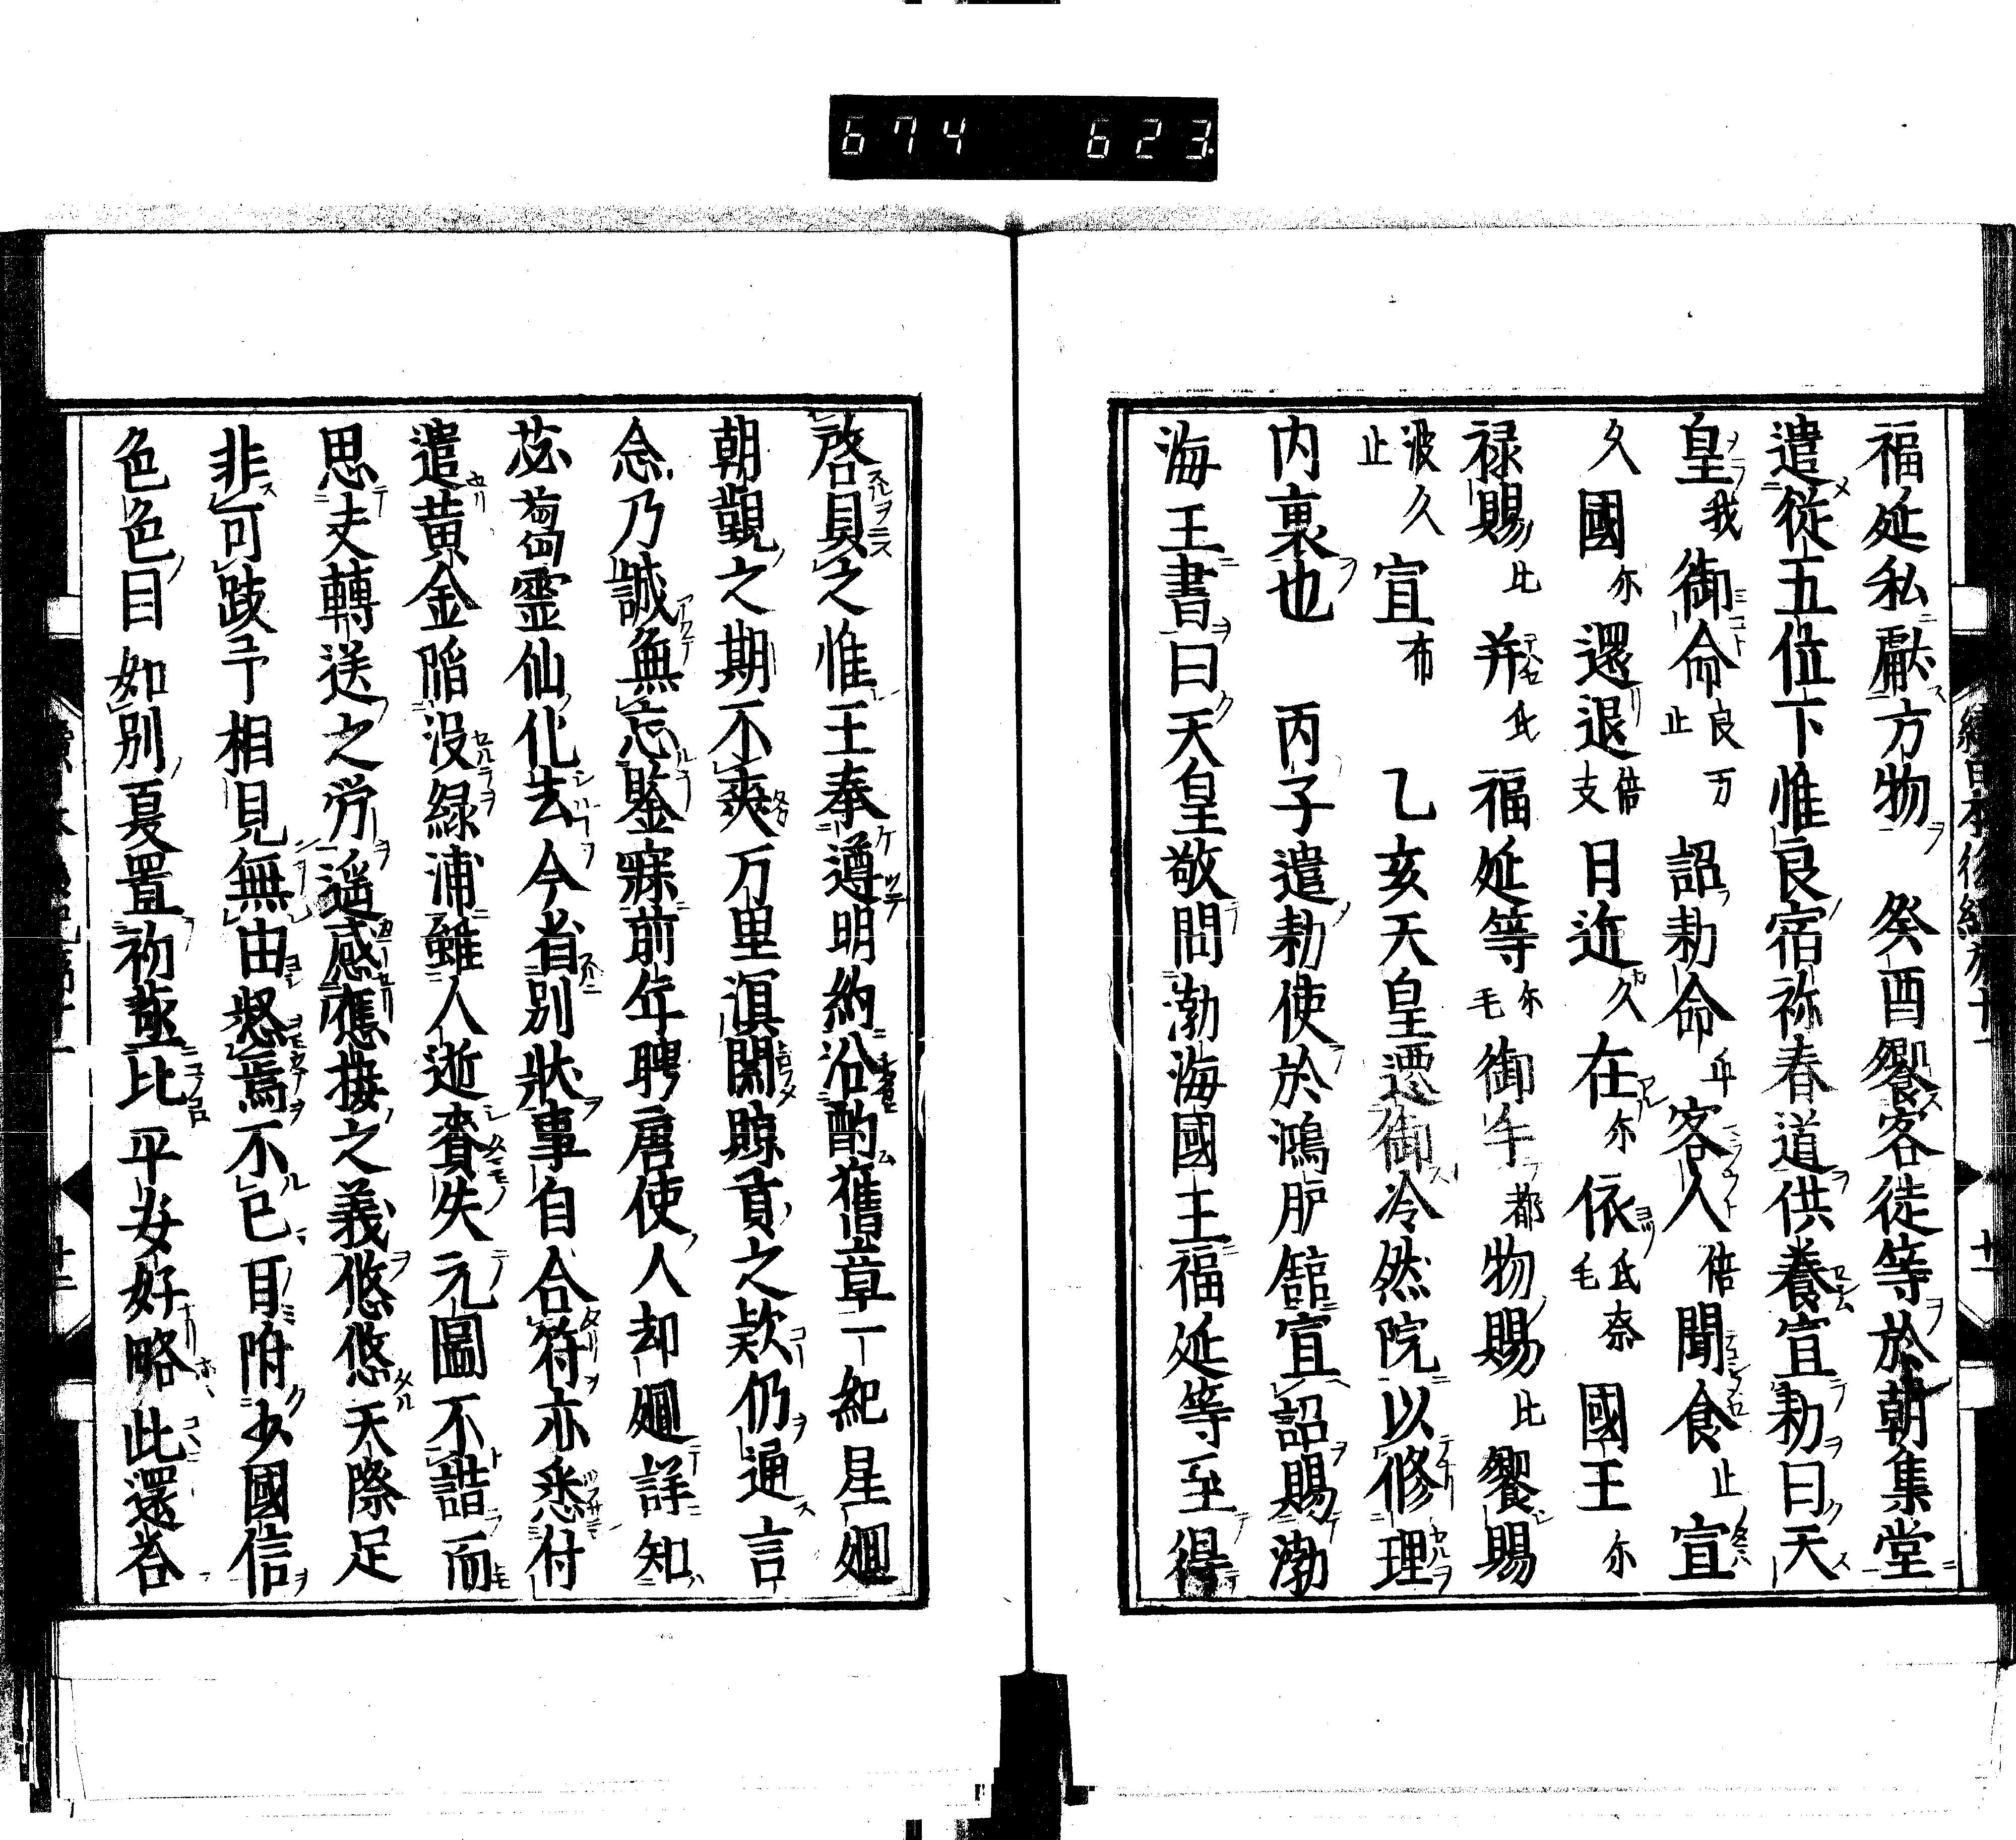 674 623
福延私獻方物 癸酉饗客徒等於朝集堂
遣從五位下惟良宿祢春道供養宣勅曰天
皇我御命良万止詔勅命乎客人倍聞食止宣
久國尓還退倍支日近久在尓依氐奈毛國王尓
禄賜比并氐福延等尓毛御手都物賜比饗賜
波久止宣布 乙亥天皇遷御冷然院以修理
内裏也 丙子遣勅使於鴻臚舘宣詔賜渤
海王書曰天皇敬問渤海國王福延等至得
啓具之惟王奉遵明約沿酌舊章一紀星廻
朝覲之期不爽万里溟闊賝貢之款仍通言
念乃誠無忘鑒寐前年聘唐使人却廻詳知
苾蒭靈仙化去今省別狀事自合符亦悉付
遣黄金陷没綠浦雖人逝賷失元圖不諧而
思夫轉送之労遥感應接之義悠悠天際足
非可跂予相見無由怒焉不已耳附少國信
色色目如別夏置初蒸比平安好略此還荅